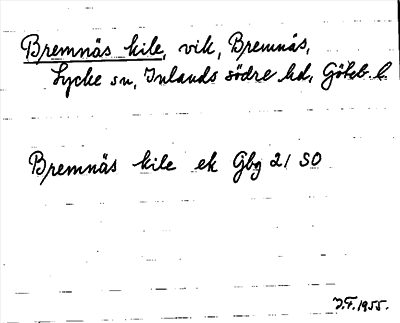 Bremnäs kile, vik, Bremnäs,
Lycke sn, Inlands södre hd, Göteb. l.
Bremnäs kile ek Gbg 21 SO
J.F. 1955.